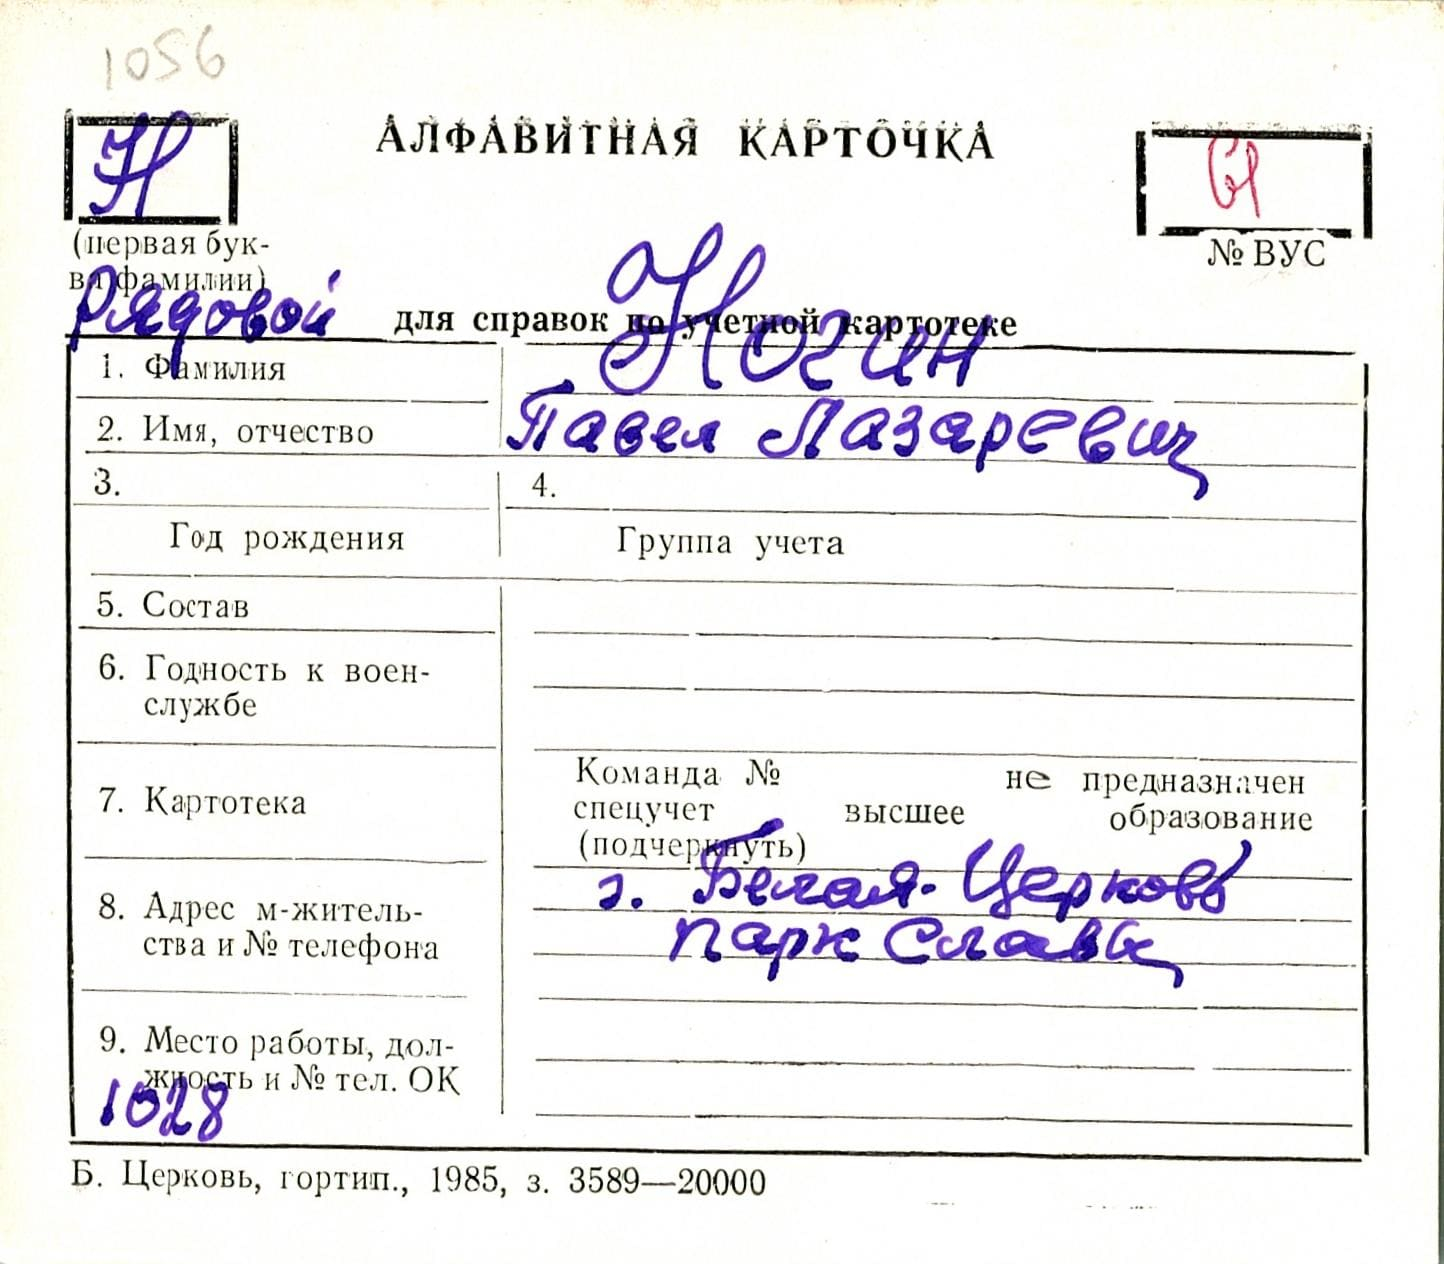 1056
Н
АЛФАВИТНАЯ КАРТОЧКА
61
(первая бук-
ва фамилии)
№ ВУС
Рядовой
для справок по учетной картотеке
1. Фамилия Ногин
2. Имя, отчество Павел Лазаревич
3. 4.
Год рождения Группа учета
5. Состав
6. Годность к воен-
службе
7. Картотека
Команда № не предназначен
спецучет высшее образование
(подчеркнуть)
8. Адрес м-житель-
ства и № телефона
г. Белая-Церковь
парк Славы
9. Место работы, дол-
жность и № тел. ОК
1028
Б. Церковь, гортип., 1985, з. 3589—20000